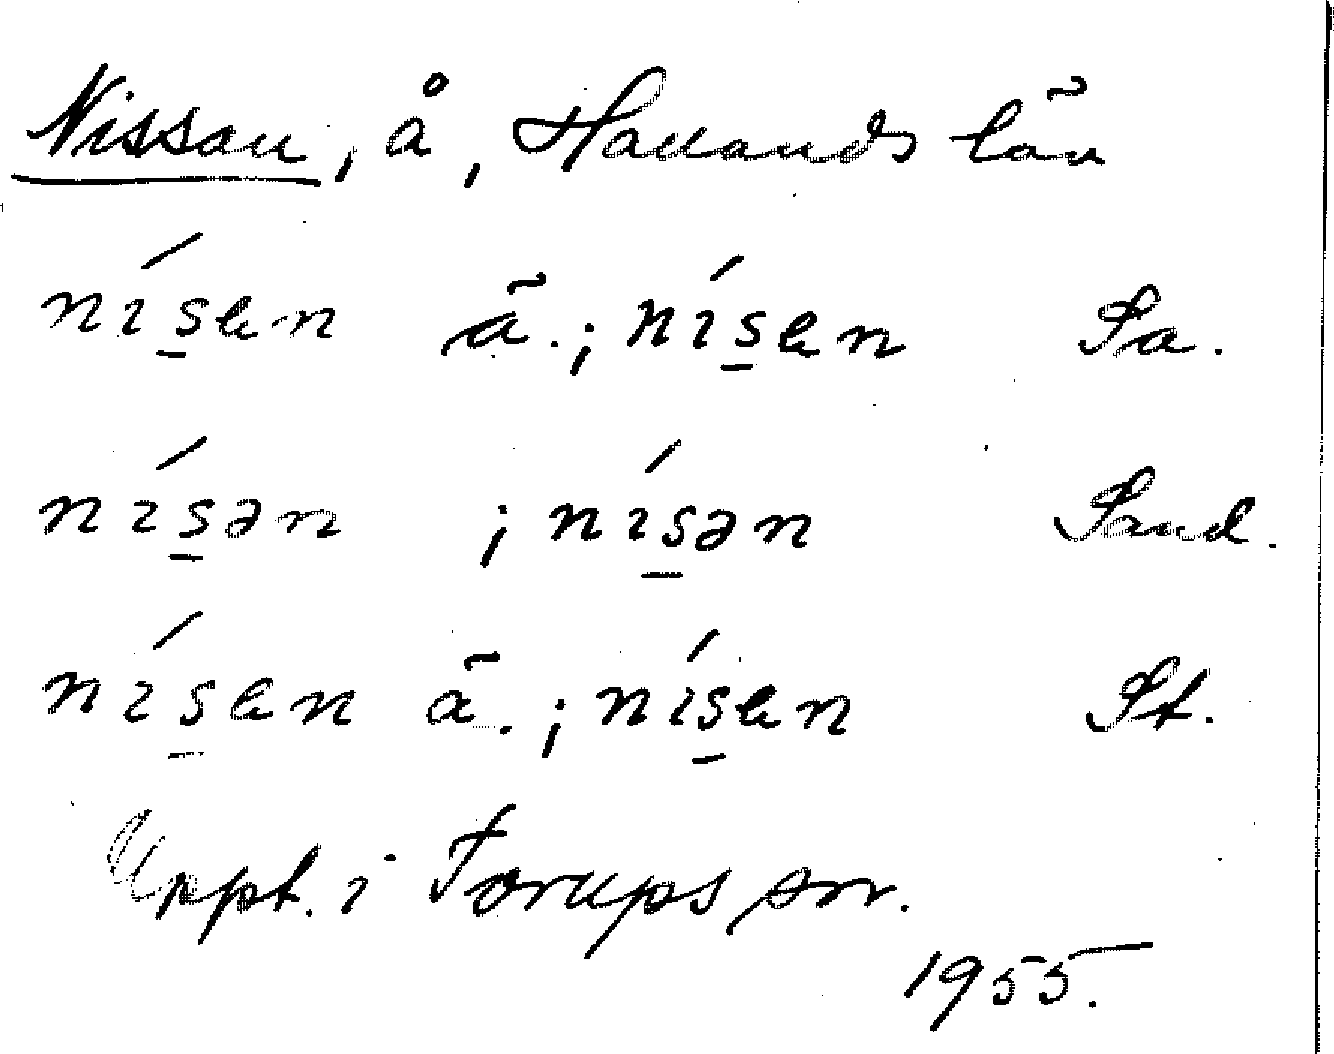 Nissan, å, Hallands län
nísen ä.; nísen Sa.
nísən ; nísən Sand.
nísen ä.; nísen St.
Uppt. i Torups sn.
1955.